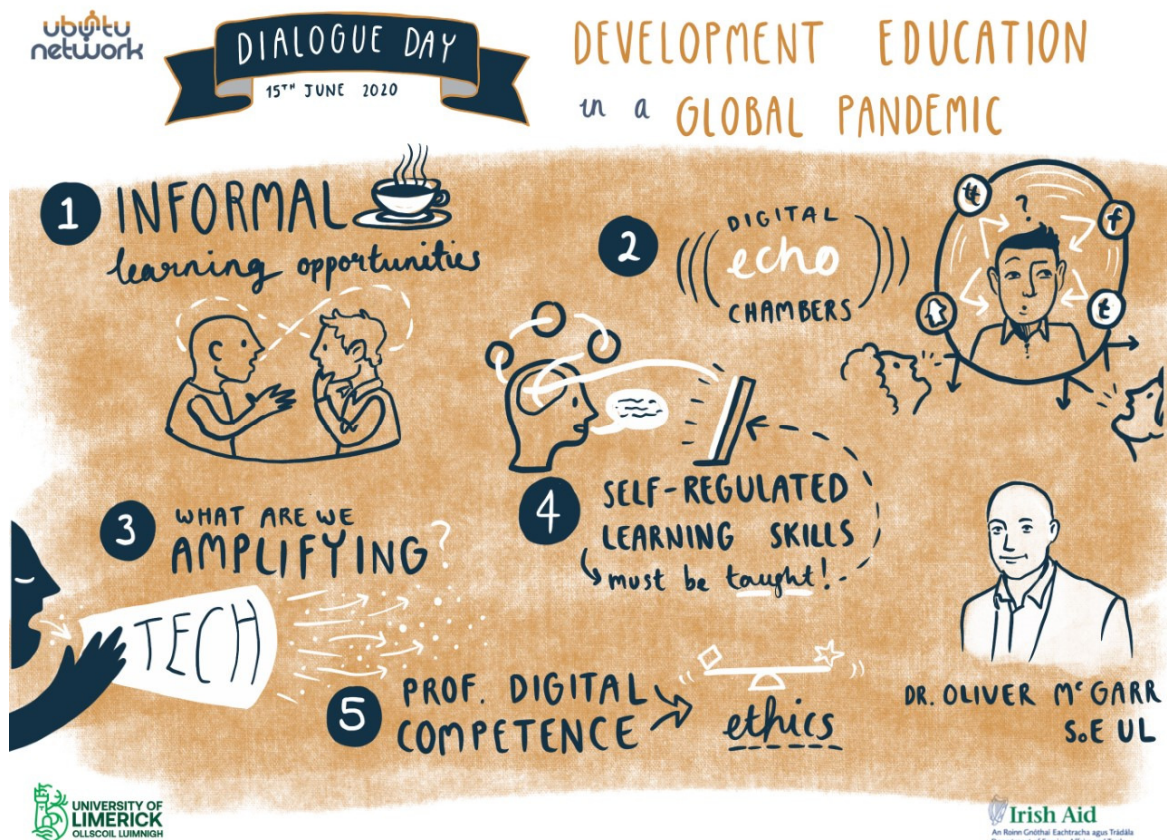 ubuntu
network
DIALOGUE DAY
15TH JUNE 2020
DEVELOPMENT EDUCATION
in a GLOBAL PANDEMIC
1 INFORMAL
learning opportunities
2 DIGITAL
echo
CHAMBERS
tt
?
f
t
t
3 WHAT ARE WE
AMPLIFYING?
TECH
4 SELF-REGULATED
LEARNING SKILLS
must be taught!
5 PROF. DIGITAL
COMPETENCE
ethics
DR. OLIVER McGARR
SoE UL
UNIVERSITY OF
LIMERICK
OLLSCOIL LUIMNIGH
Irish Aid
An Roinn Gnóthaí Eachtracha agus Trádála